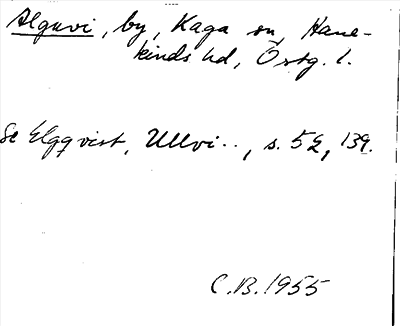 Alguvi, by, Kaga sn, Hane-
kinds hd, Östg. l.
Se Elgqvist, Ullvi.., s. 52, 139.
C.B. 1955